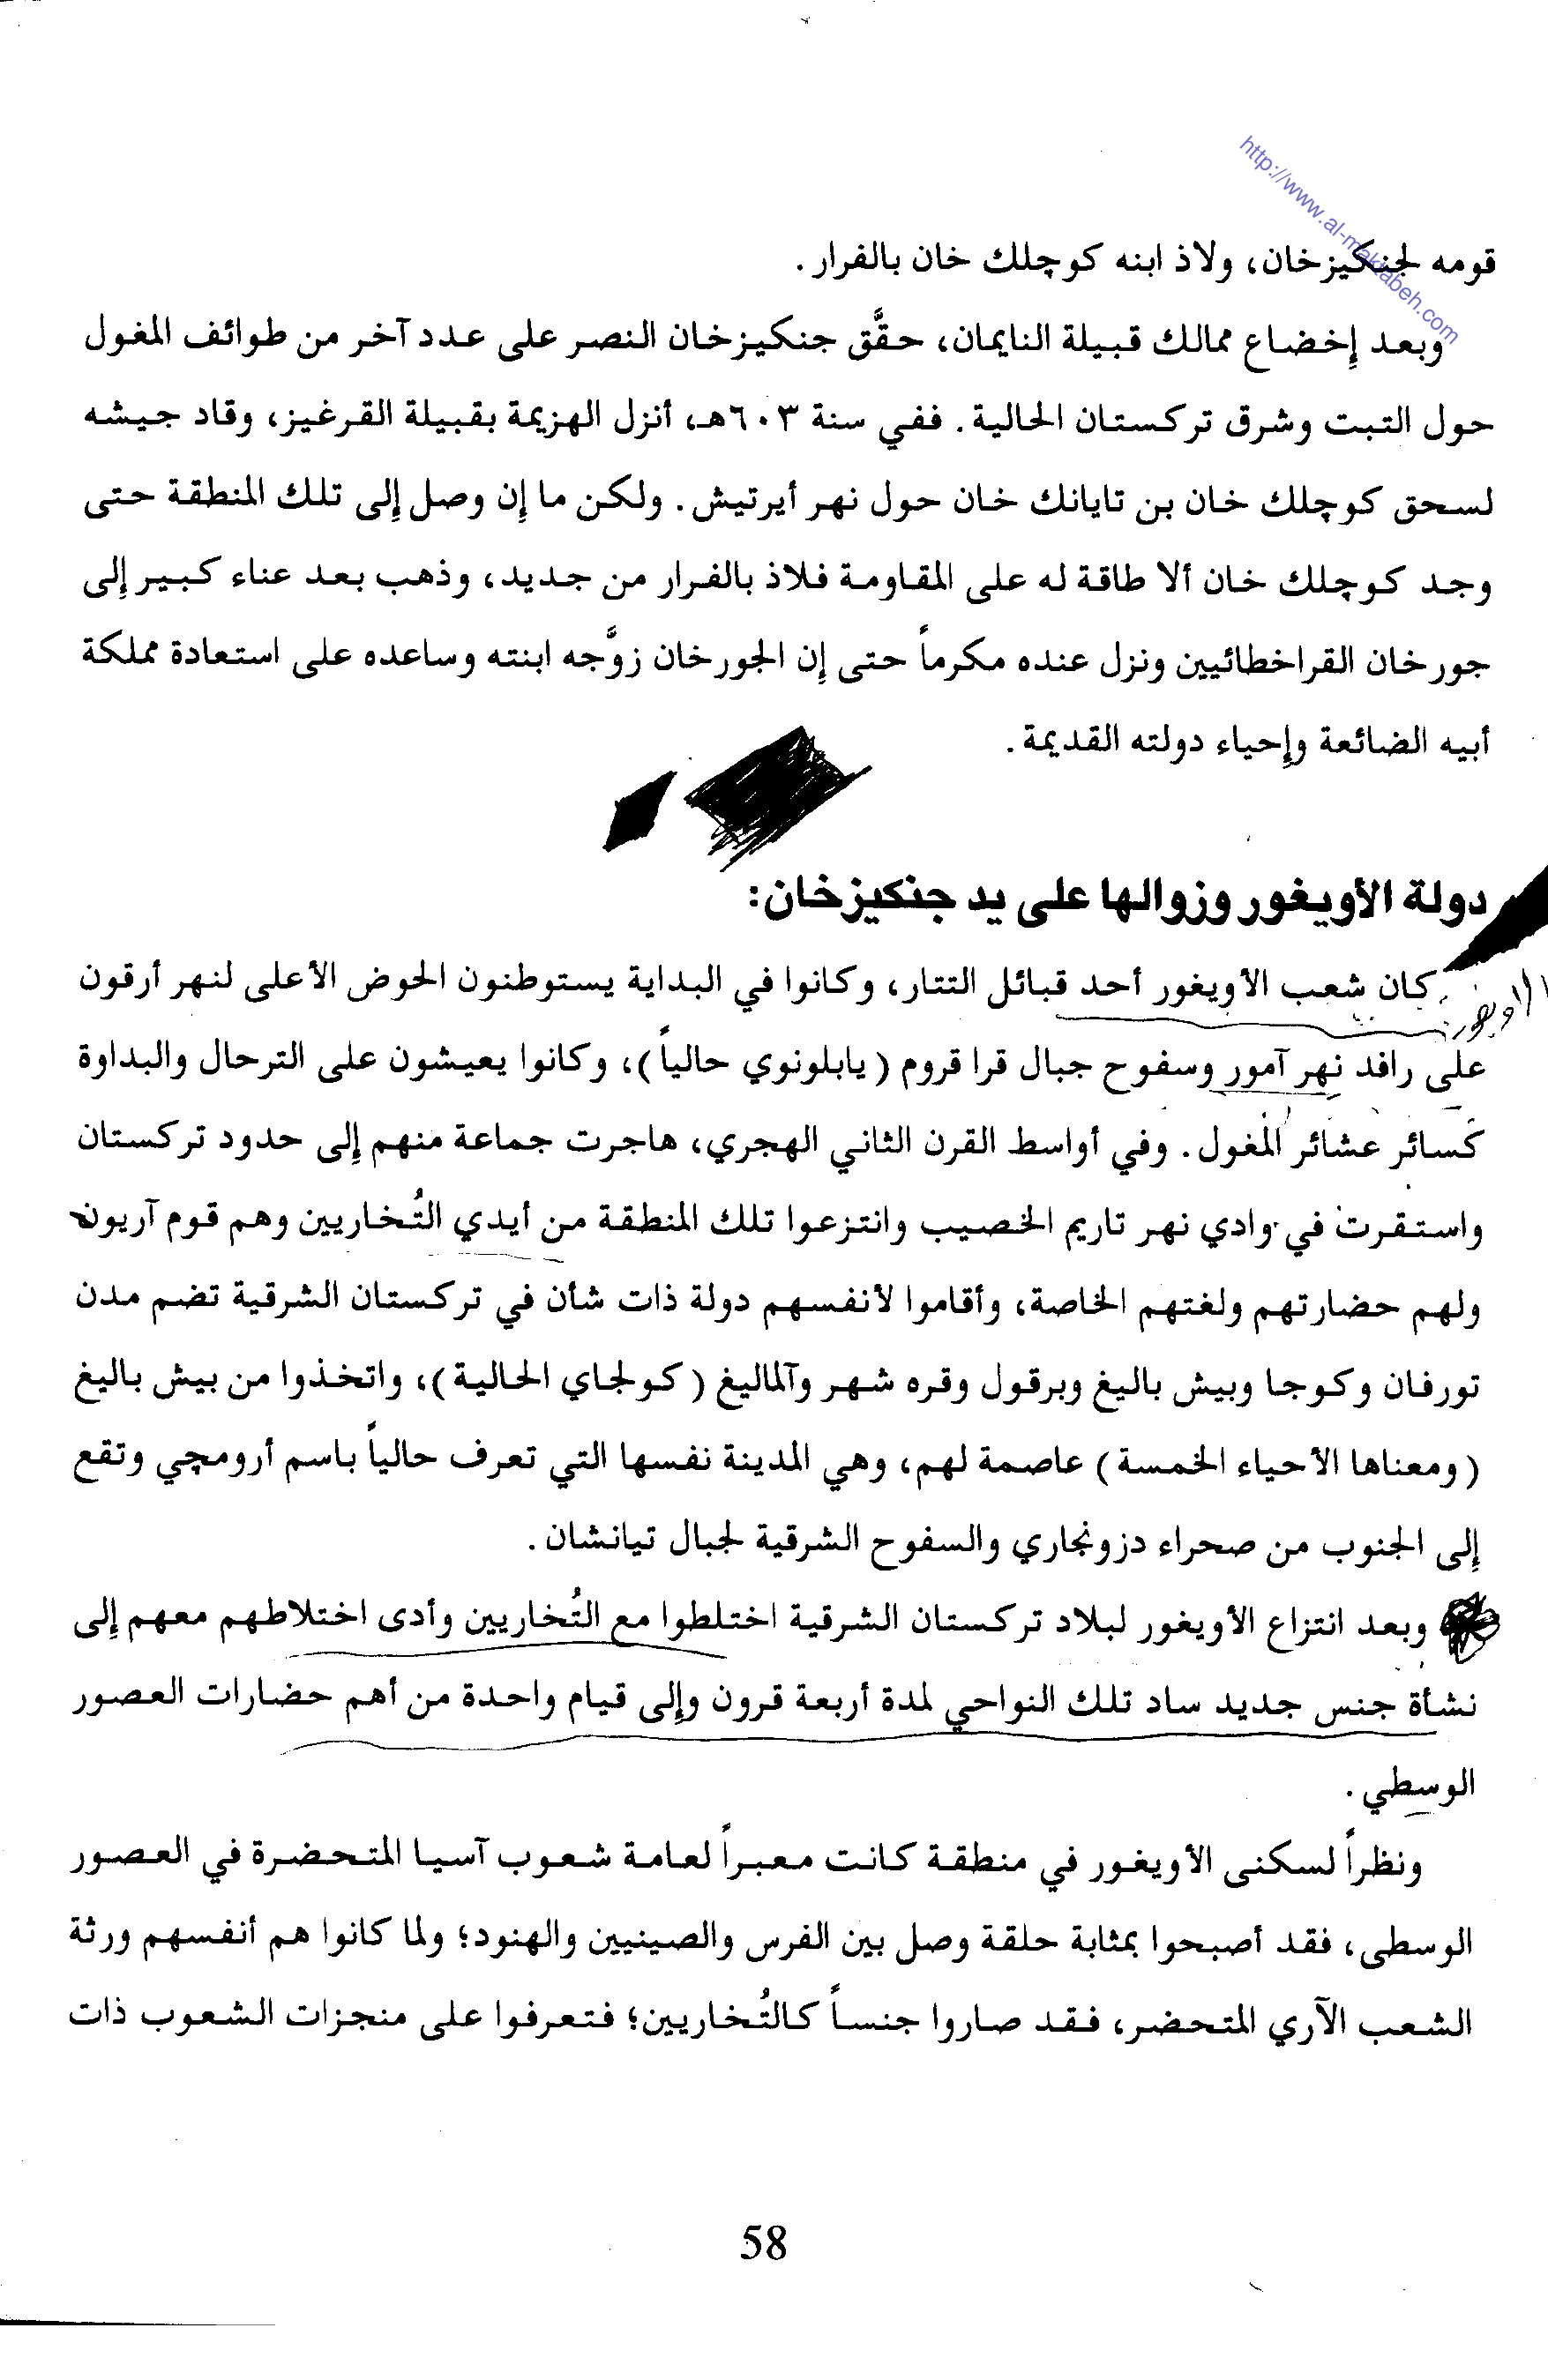 http://www.al-maktabeh.com
قومه لجنكيزخان، ولاذ ابنه كوچلك خان بالفرار.
وبعد إخضاع ممالك قبيلة النايمان، حقَّق جنكيزخان النصر على عدد آخر من طوائف المغول
حول التبت وشرق تركستان الحالية. ففي سنة ٦٠٣هـ، أنزل الهزيمة بقبيلة القرغيز، وقاد جيشه
لسحق كوچلك خان بن تايانك خان حول نهر أيرتيش. ولكن ما إن وصل إلى تلك المنطقة حتى
وجد كوچلك خان ألا طاقة له على المقاومة فلاذ بالفرار من جديد، وذهب بعد عناء كبير إلى
جورخان القراخطائيين ونزل عنده مكرماً حتى إن الجورخان زوَّجه ابنته وساعده على استعادة مملكة
أبيه الضائعة وإحياء دولته القديمة.
دولة الأويغور وزوالها على يد جنكيزخان:
كان شعب الأويغور أحد قبائل التتار، وكانوا في البداية يستوطنون الحوض الأعلى لنهر أرقون
على رافد نهر آمور وسفوح جبال قرا قروم (يابلونوي حالياً)، وكانوا يعيشون على الترحال والبداوة
كسائر عشائر المغول. وفي أواسط القرن الثاني الهجري، هاجرت جماعة منهم إلى حدود تركستان
واستقرت في وادي نهر تاريم الخصيب وانتزعوا تلك المنطقة من أيدي التُخاريين وهم قوم آريون
ولهم حضارتهم ولغتهم الخاصة، وأقاموا لأنفسهم دولة ذات شأن في تركستان الشرقية تضم مدن
تورفان وكوجا وبيش باليغ وبرقول وقره شهر وآلماليغ (كولجاي الحالية)، واتخذوا من بيش باليغ
(ومعناها الأحياء الخمسة) عاصمة لهم، وهي المدينة نفسها التي تعرف حالياً باسم أرومچي وتقع
إلى الجنوب من صحراء دزونجاري والسفوح الشرقية لجبال تيانشان.
وبعد انتزاع الأويغور لبلاد تركستان الشرقية اختلطوا مع التُخاريين وأدى اختلاطهم معهم إلى
نشأة جنس جديد ساد تلك النواحي لمدة أربعة قرون وإلى قيام واحدة من أهم حضارات العصور
الوسطي.
ونظراً لسكنى الأويغور في منطقة كانت معبراً لعامة شعوب آسيا المتحضرة في العصور
الوسطى، فقد أصبحوا بمثابة حلقة وصل بين الفرس والصينيين والهنود؛ ولما كانوا هم أنفسهم ورثة
الشعب الآري المتحضر، فقد صاروا جنساً كالتُخاريين؛ فتعرفوا على منجزات الشعوب ذات
58